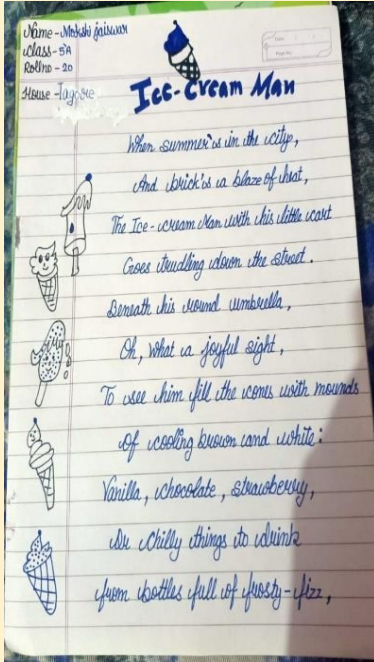 Name - Mokshi Jaiswar
Class - 5A
Rollno - 20
House - Tagore
Ice-Cream Man
When summer's in the city,
And brick's a blaze of heat,
The Ice-cream Man with his little cart
Goes trudling down the street.
Beneath his round umbrella,
Oh, What a joyful sight,
To see him fill the cones with mounds
Of cooling brown and white:
Vanilla, chocolate, strawberry,
Or chilly things to drink
From bottles full of frosty-fizz,